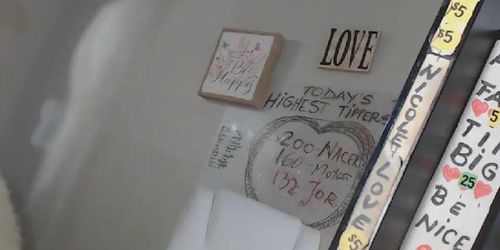 Be
Happy
LOVE
TODAY'S
HIGHEST TIPPERS
200 NACER
160
132 JOR
$5
$5
NICOLE LOVE
$5
FA
5
TI
BIG
25
BE
NICE